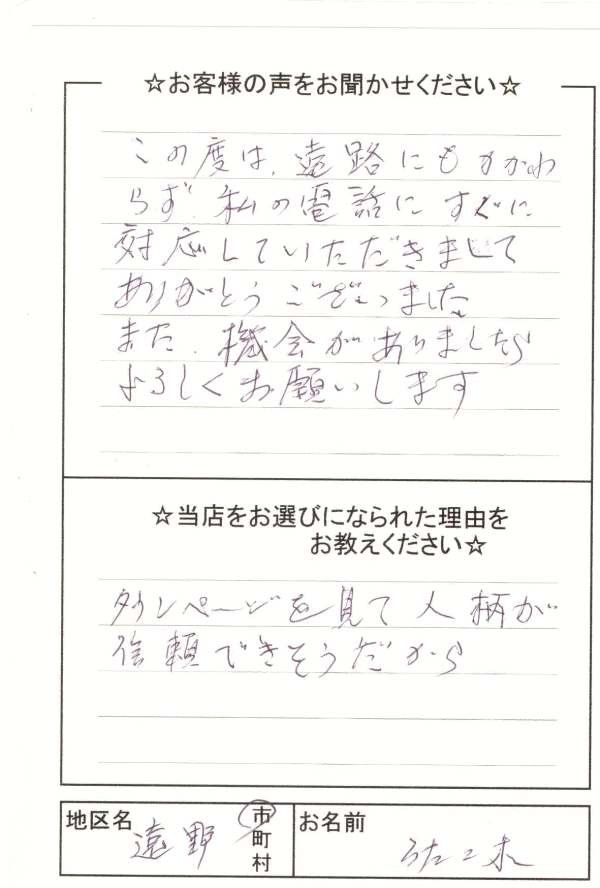 ☆お客様の声をお聞かせください☆
この度は、遠路にもかかわ
らず、私の電話にすぐに
対応していただきまして
ありがとうございました
また、機会がありましたら
よろしくお願いします
☆当店をお選びになられた理由を
お教えください☆
タウンページを見て人柄が
信頼できそうだから
地区名 遠野 市
町
村
お名前 佐々木